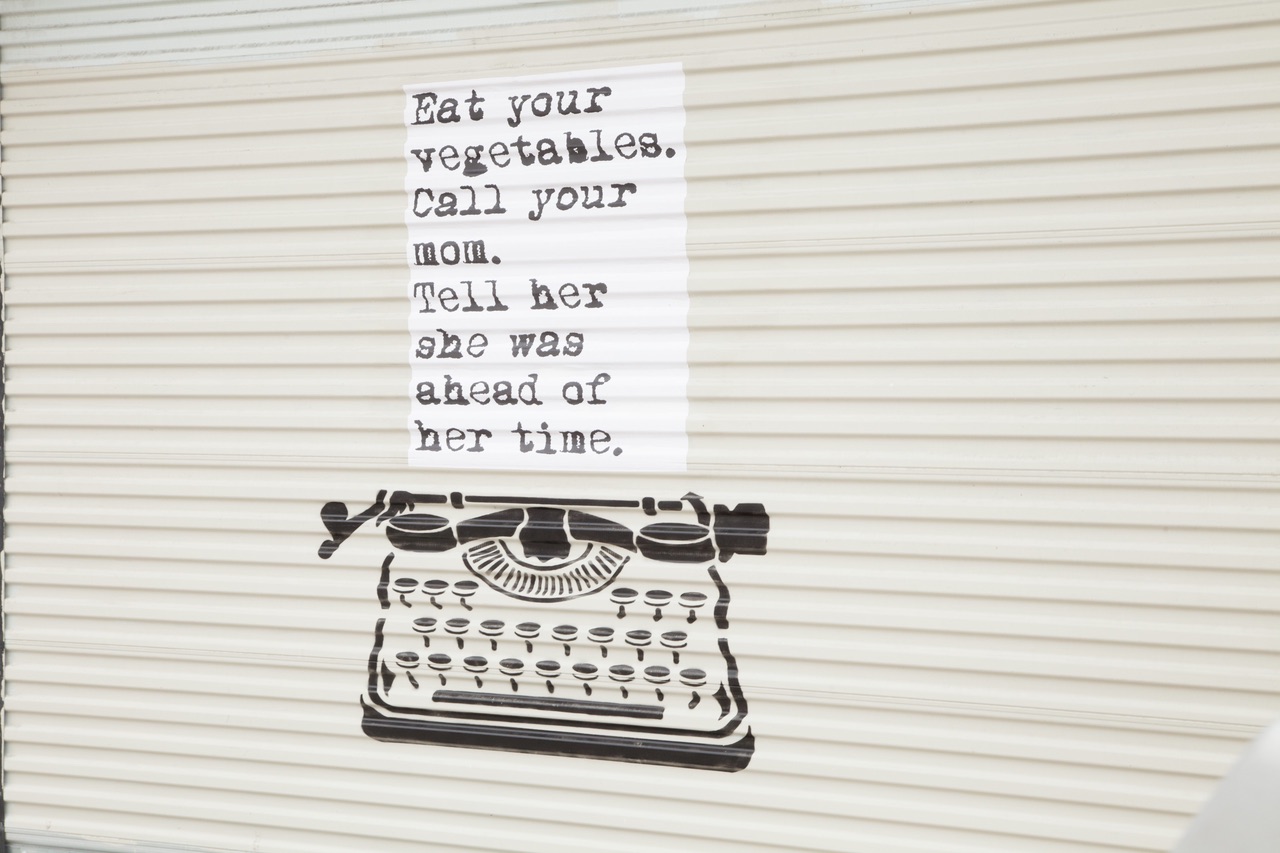 Eat your
vegetables.
Call your
mom.
Tell her
she was
ahead of
her time.